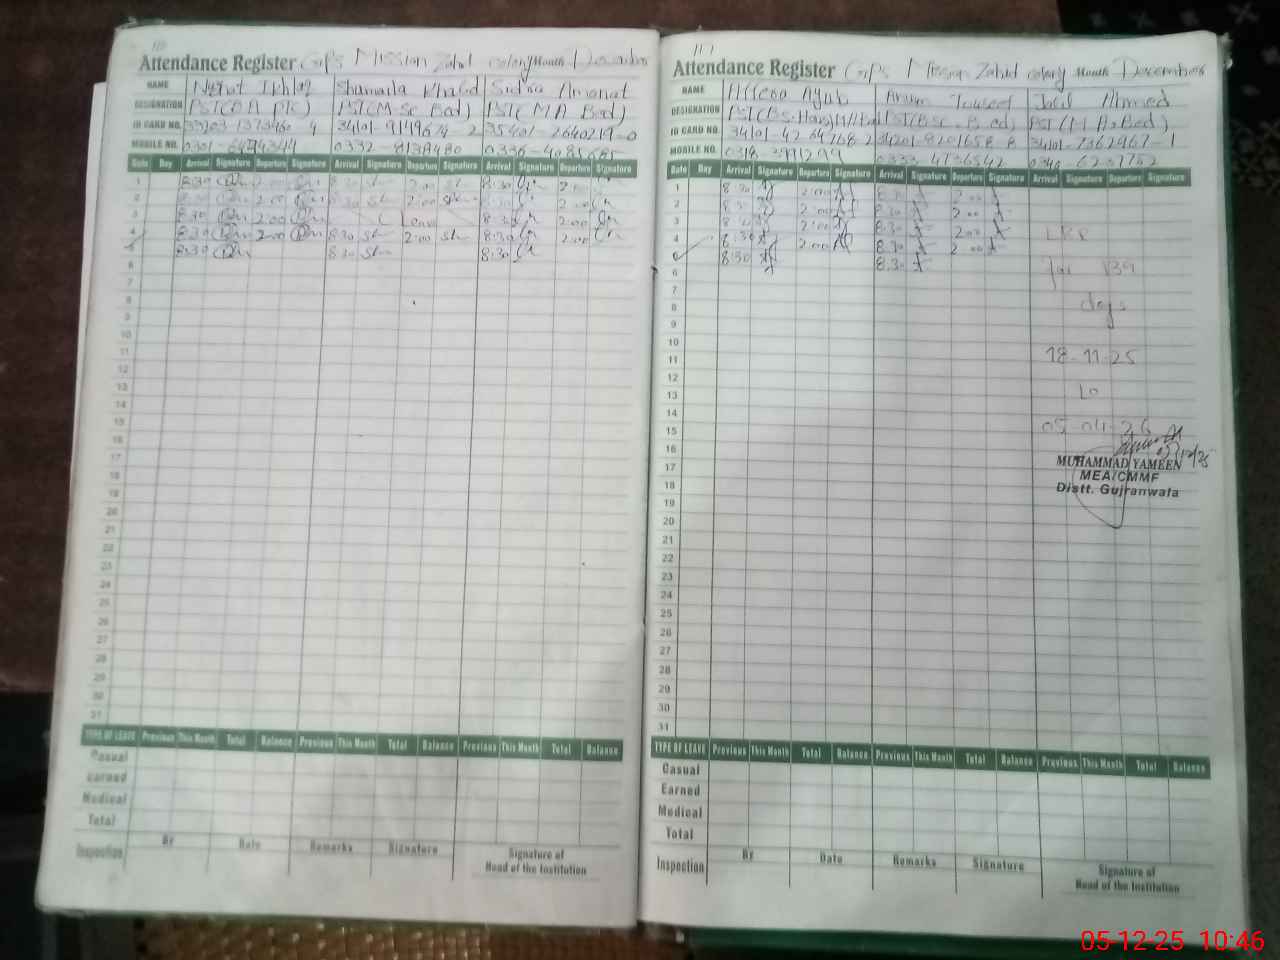 110
Attendance Register GGPS Mission Zahid colony Month December
NAME Nighat Ikhlaq Shumaila Khalid Sidra Amanat
DESIGNATION PST(B A PTC) PST(M.Sc Bed) PST(M A Bed)
ID CARD NO. 34101-9149674-2 35401-2640219-0
MOBILE NO. 0332-8138480 0336-4085685
Date Day Arrival Signature Departure Signature Arrival Signature Departure Signature Arrival Signature Departure Signature
1 8:30 2:00 8:30 2:00 8:30 2:00
2 8:30 2:00 8:30 2:00 8:30 2:00
3 8:30 2:00 Leave 8:30 2:00
4 8:30 2:00 8:30 2:00 8:30 2:00
8:30 8:30 8:30
6
7
8
9
10
11
12
13
14
15
16
17
18
19
20
21
22
23
24
25
26
27
28
29
30
31
TYPE OF LEAVE Previous This Month Total Balance Previous This Month Total Balance Previous This Month Total Balance
Casual
Earned
Medical
Total
Inspection By Date Remarks Signature Signature of
Head of the Institution
111
Attendance Register GGPS Mission Zahid colony Month December
NAME Ayub Jalil Ahmed
DESIGNATION PST(Bs.Hons)M/A Bed PST(Bsc. B.ed) PST(M A.Bed)
ID CARD NO. 34101-4264768-2 34201-8201658-8 34101-7362467-1
MOBILE NO. 0318-3991299 0333-4736542 0346-6237752
Date Day Arrival Signature Departure Signature Arrival Signature Departure Signature Arrival Signature Departure Signature
1 8:30 2:00 8:30 2:00
2 8:30 2:00 8:30 2:00
3 8:30 2:00 8:30 2:00 LRP
4 8:30 2:00 8:30 2:00
8:30 8:30
6 for 139
7
8 days
9
10
11 18-11-25
12
13 to
14
15 05-04-26
16
17 MUHAMMAD YAMEEN
MEA/CMMF
18 Distt. Gujranwala
19
20
21
22
23
24
25
26
27
28
29
30
31
TYPE OF LEAVE Previous This Month Total Balance Previous This Month Total Balance Previous This Month Total Balance
Casual
Earned
Medical
Total
Inspection By Date Remarks Signature Signature of
Head of the Institution
05-12-25 10:46